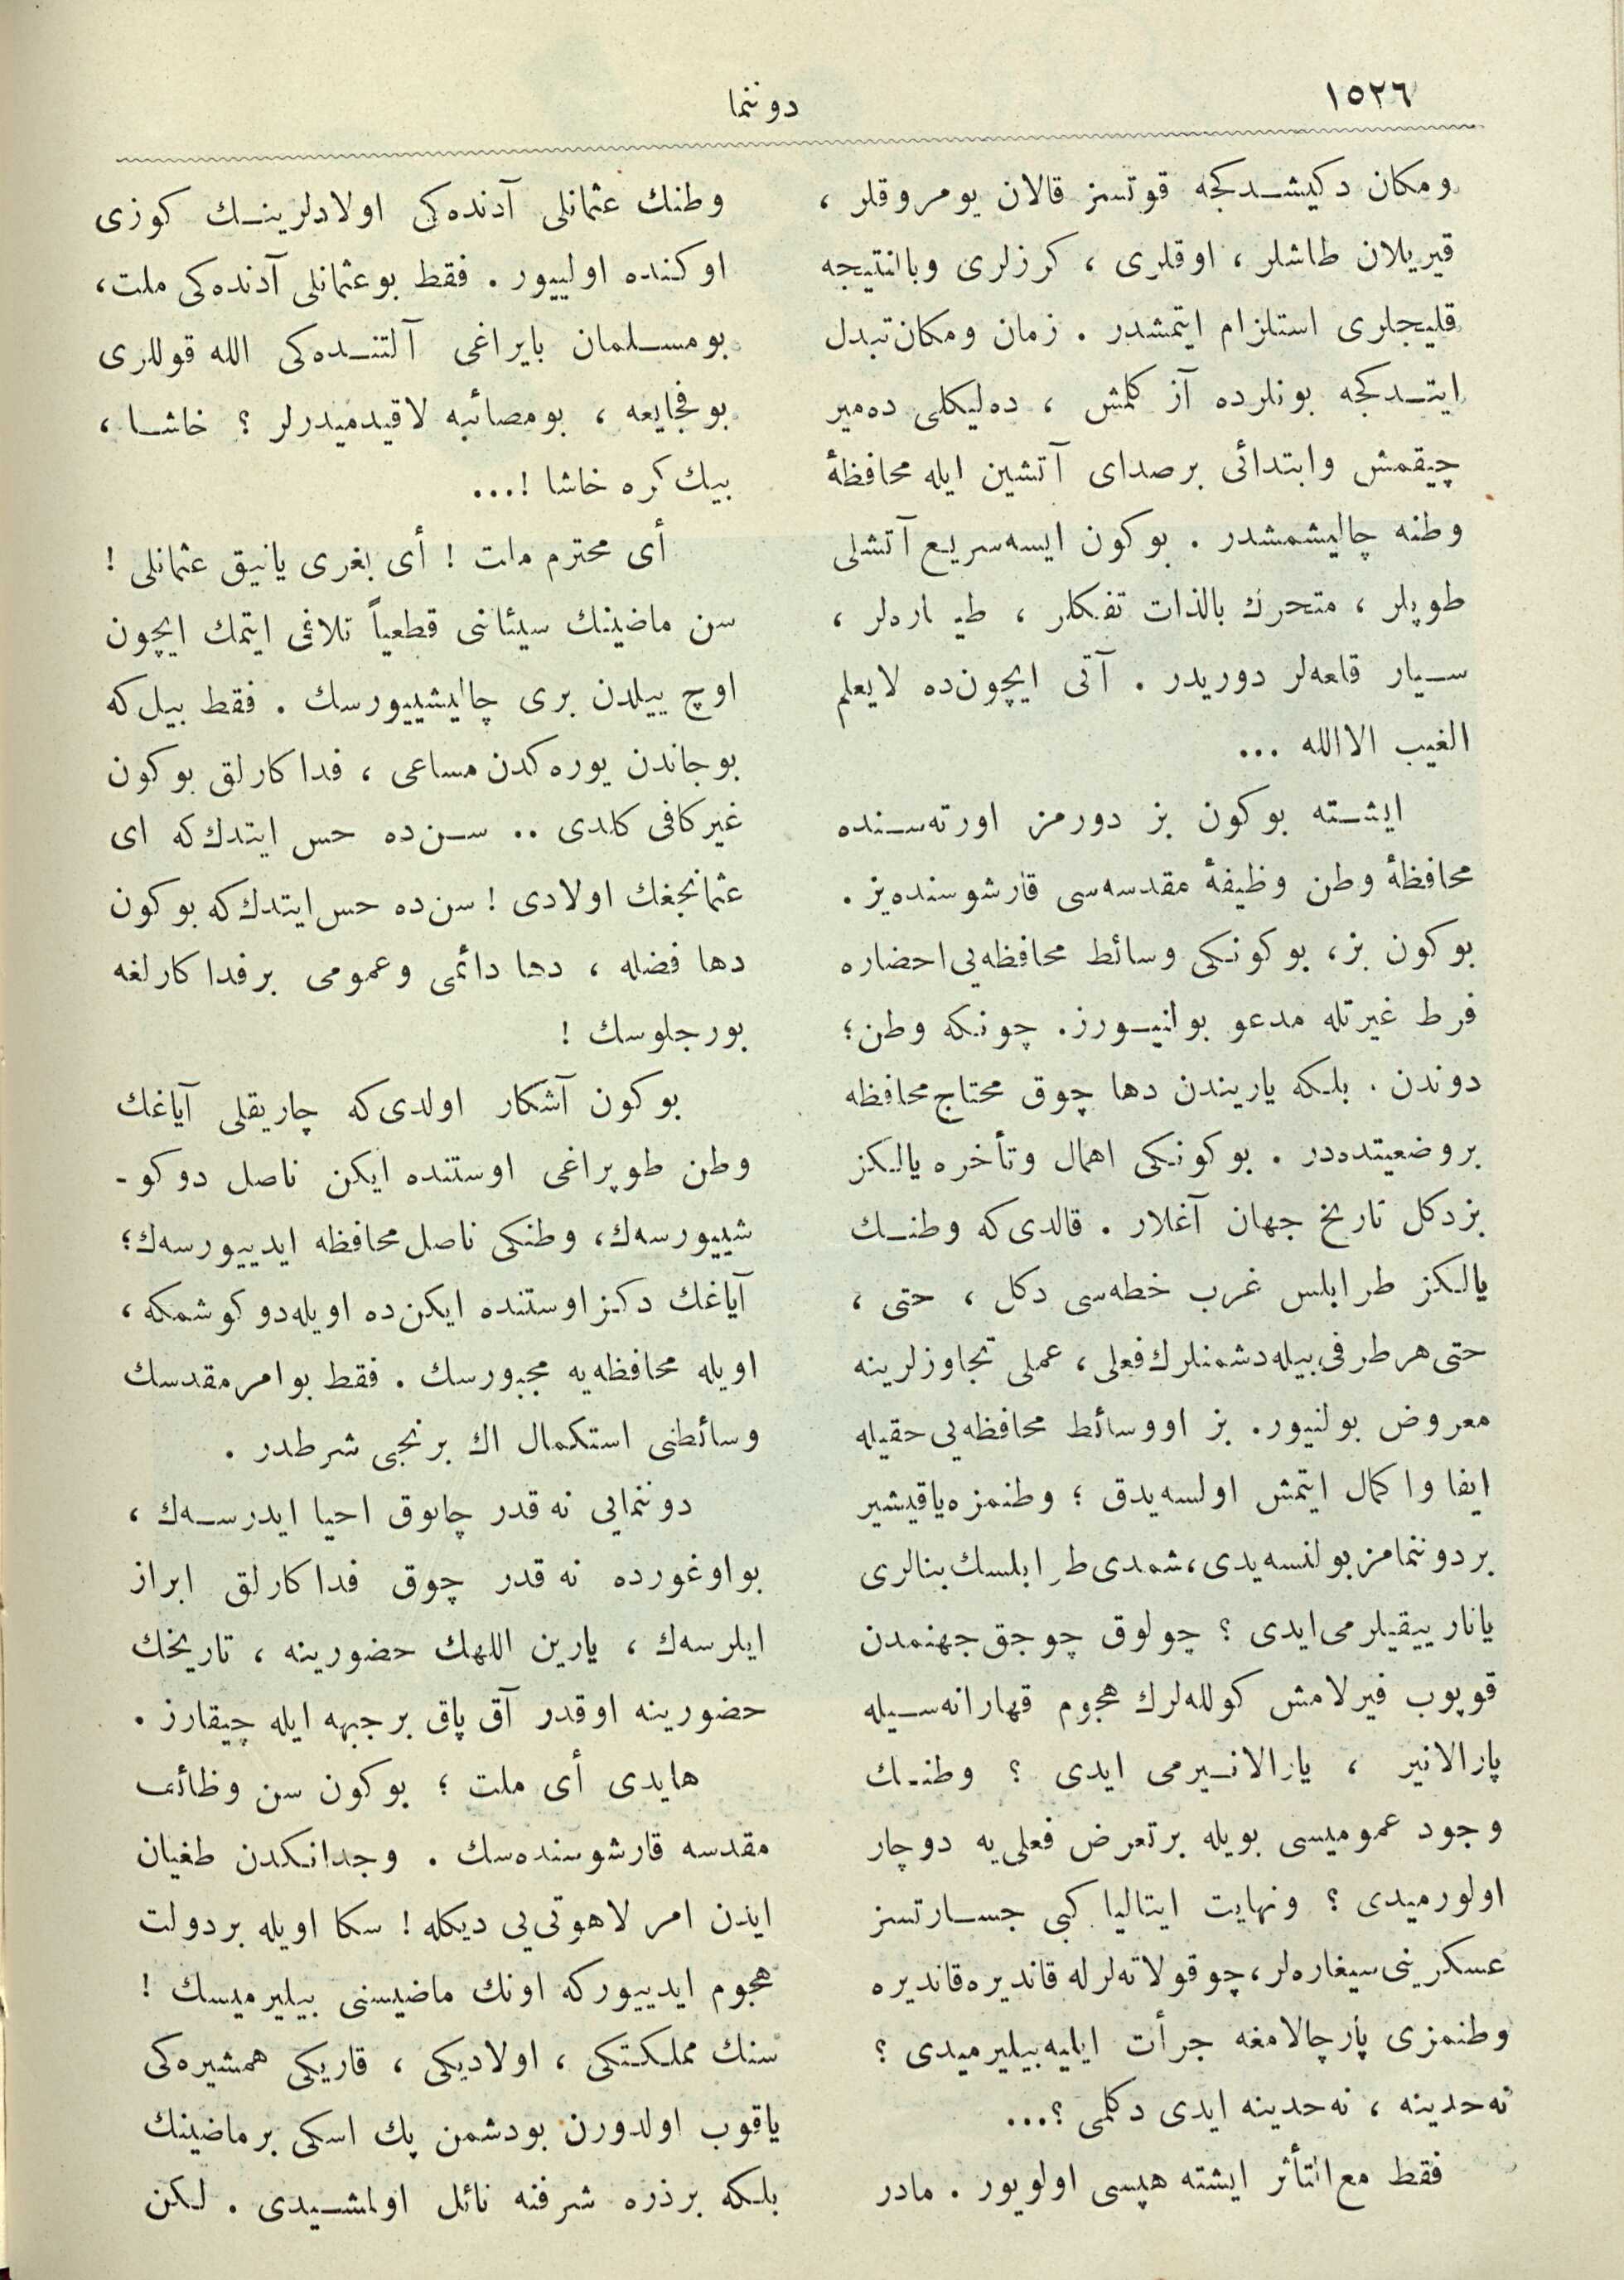 ١٥٢٦
دوننما
ومكان دكيشدكجه قوتسز قالان يومروقلر ،
قيريلان طاشلر ، اوقلرى ، كرزلرى وبالنتيجه
قليجلرى استلزام ايتمشدر . زمان ومكان تبدل
ايتدكجه بونلرده آز كلمش ، ده‌ليكلى ده‌مير
چيقمش وابتدائى برصداى آتشين ايله محافظۀ
وطنه چاليشمشدر . بوكون ايسه سريع آتشلى
طوپلر ، متحرك بالذات تفكلر ، طياره‌لر ،
سيار قلعه‌لر دوريدر . آتى ايچون‌ده لايعلم
الغيب الاالله ...
ايشته بوكون بز دورمز اورته‌سنده
محافظۀ وطن وظيفۀ مقدسه‌سى قارشوسنده‌يز .
بوكون بز، بوكونكى وسائط محافظه‌يى احضاره
فرط غيرتله مدعو بولنيورز. چونكه وطن؛
دوندن . بلكه ياريندن دها چوق محتاج محافظه
بروضعيتده‌در . بوكونكى اهمال وتأخره يالكز
بزدكل تاريخ جهان آغلار . قالدى‌كه وطنك
يالكز طرابلس غرب خطه‌سى دكل ، حتى ،
حتى هرطرفى‌بيله دشمنلرك فعلى ، عملى تجاوزلرينه
معروض بولنيور. بز اووسائط محافظه‌يى حقيله
ايفا واكمال ايتمش اولسه‌يدق ؛ وطنمزه ياقيشير
بردوننمامز بولنسه‌يدى، شمدى طرابلسك بنالرى
يانار ييقيلرمى‌ايدى ؟ چولوق چوجق جهنمدن
قوپوب فيرلامش كولله‌لرك هجوم قهارانه‌سيله
پارالانير ، يارالانيرمى ايدى ؟ وطنك
وجود عموميسى بويله برتعرض فعلى‌يه دوچار
اولورميدى ؟ ونهايت ايتاليا كبى جسارتسز
عسكرينى سيغاره‌لر، چوقولاته‌لرله قانديره قانديره
وطنمزى پارچالامغه جرأت ايليه‌بيليرميدى ؟
نه‌حدينه ، نه‌حدينه ايدى دكلمى ؟...
فقط مع‌التأثر ايشته هپسى اولويور . مادر
وطنك عثمانلى آدنده‌كى اولادلرينك كوزى
اوكنده اولييور . فقط بوعثمانلى آدنده‌كى ملت،
بومسلمان بايراغى آلتنده‌كى الله قوللرى
بوفجايعه ، بومصائبه لاقيدميدرلر ؟ خاشا ،
بيك كره خاشا !...
أى محترم ملت ! أى بغرى يانيق عثمانلى !
سن ماضينك سيئاتنى قطعياً تلافى ايتمك ايچون
اوچ ييلدن برى چاليشييورسك . فقط بيل‌كه
بوجاندن يوره‌كدن مساعى ، فداكارلق بوكون
غيركافى كلدى .. سن‌ده حس ايتدك‌كه اى
عثمانجغك اولادى ! سن‌ده حس ايتدك‌كه بوكون
دها فضله ، دها دائمى وعمومى برفداكارلغه
بورجلوسك !
بوكون آشكار اولدى‌كه چاريقلى آياغك
وطن طوپراغى اوستنده ايكن ناصل دوكو-
شييورسه‌ك، وطنكى ناصل محافظه ايدييورسه‌ك؛
آياغك دكز اوستنده ايكن‌ده اويله‌دوكوشمكه ،
اويله محافظه‌يه مجبورسك . فقط بوامر مقدسك
وسائطنى استكمال اك برنجى شرطدر .
دوننمايى نه قدر چابوق احيا ايدرسه‌ك ،
بواوغورده نه قدر چوق فداكارلق ابراز
ايلرسه‌ك ، يارين اللهك حضورينه ، تاريخك
حضورينه اوقدر آق پاق برجبهه ايله چيقارز .
هايدى أى ملت ؛ بوكون سن وظائف
مقدسه قارشوسنده‌سك . وجدانكدن طغيان
ايدن امر لاهوتى‌يى ديكله ! سكا اويله بردولت
هجوم ايدييوركه اونك ماضيسنى بيليرميسك !
سنك مملكتكى ، اولاديكى ، قاريكى همشيره‌كى
ياقوب اولدورن بودشمن پك اسكى برماضينك
بلكه برذره شرفنه نائل اولمشيدى . لكن